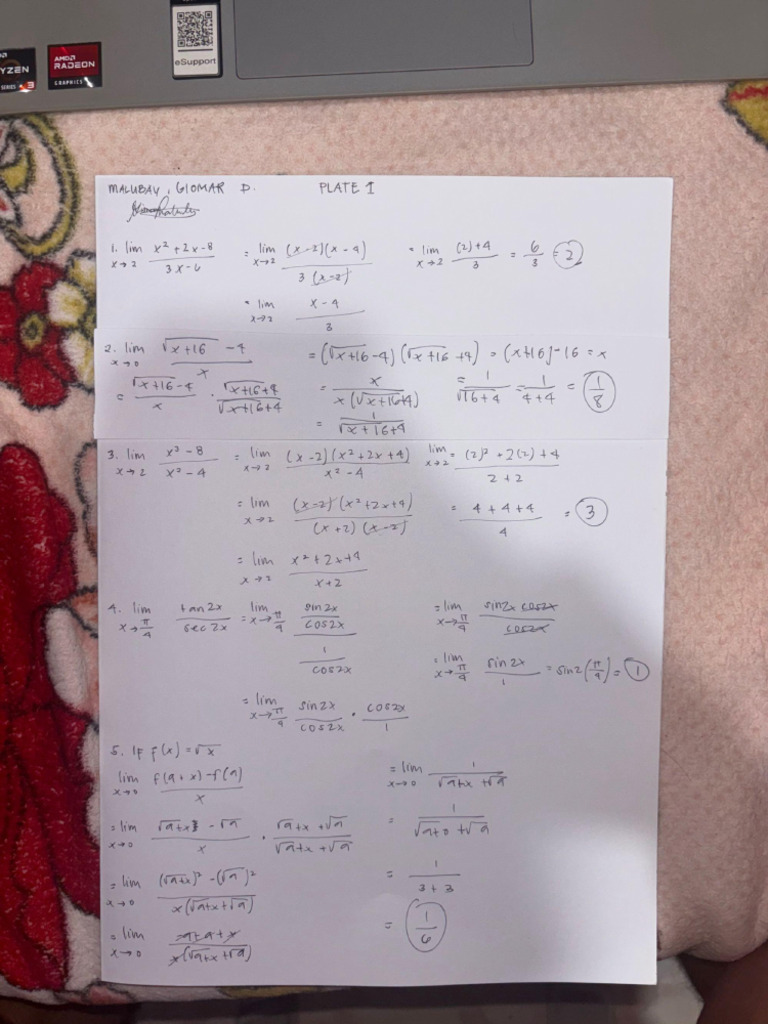 YZEN
SERIES
AMD
RADEON
GRAPHICS
eSupport
MALUBAY, GIOMAR D. PLATE 1
1. lim x→2 (x² + 2x - 8)/(3x - 6) = lim x→2 (x - 2)(x - 4)/3(x - 2) = lim x→2 ((2) + 4)/3 = 6/3 = 2
= lim x→2 (x - 4)/3
2. lim x→0 (√x+16 - 4)/x = (√x+16 - 4)(√x+16 + 4) = (x+16) - 16 = x
= (√x+16 - 4)/x · (√x+16 + 4)/(√x+16 + 4) = x/x(√x+16+4) = 1/(√16 + 4) = 1/(4 + 4) = 1/8
= 1/(√x+16+4)
3. lim x→2 (x³ - 8)/(x² - 4) = lim x→2 (x - 2)(x² + 2x + 4)/(x² - 4) lim x→2 = ((2)² + 2(2) + 4)/(2 + 2)
= lim x→2 (x - 2)(x² + 2x + 4)/(x + 2)(x - 2) = (4 + 4 + 4)/4 = 3
= lim x→2 (x² + 2x + 4)/(x + 2)
4. lim x→π/4 tan2x/sec2x = lim x→π/4 (sin2x/cos2x)/(1/cos2x) = lim x→π/4 sin2x cos2x/cos2x
= lim x→π/4 sin2x/1 = sin2(π/4) = 1
= lim x→π/4 sin2x/cos2x · cos2x/1
5. If f(x) = √x
lim x→0 (f(a + x) - f(a))/x = lim x→0 1/(√a+x + √a)
= lim x→0 (√a+x - √a)/x · (√a+x + √a)/(√a+x + √a) = 1/(√a+0 + √a)
= lim x→0 ((√a+x)² - (√a)²)/x(√a+x + √a) = 1/(3 + 3)
= lim x→0 (a + a + x)/x(√a+x + √a) = 1/6